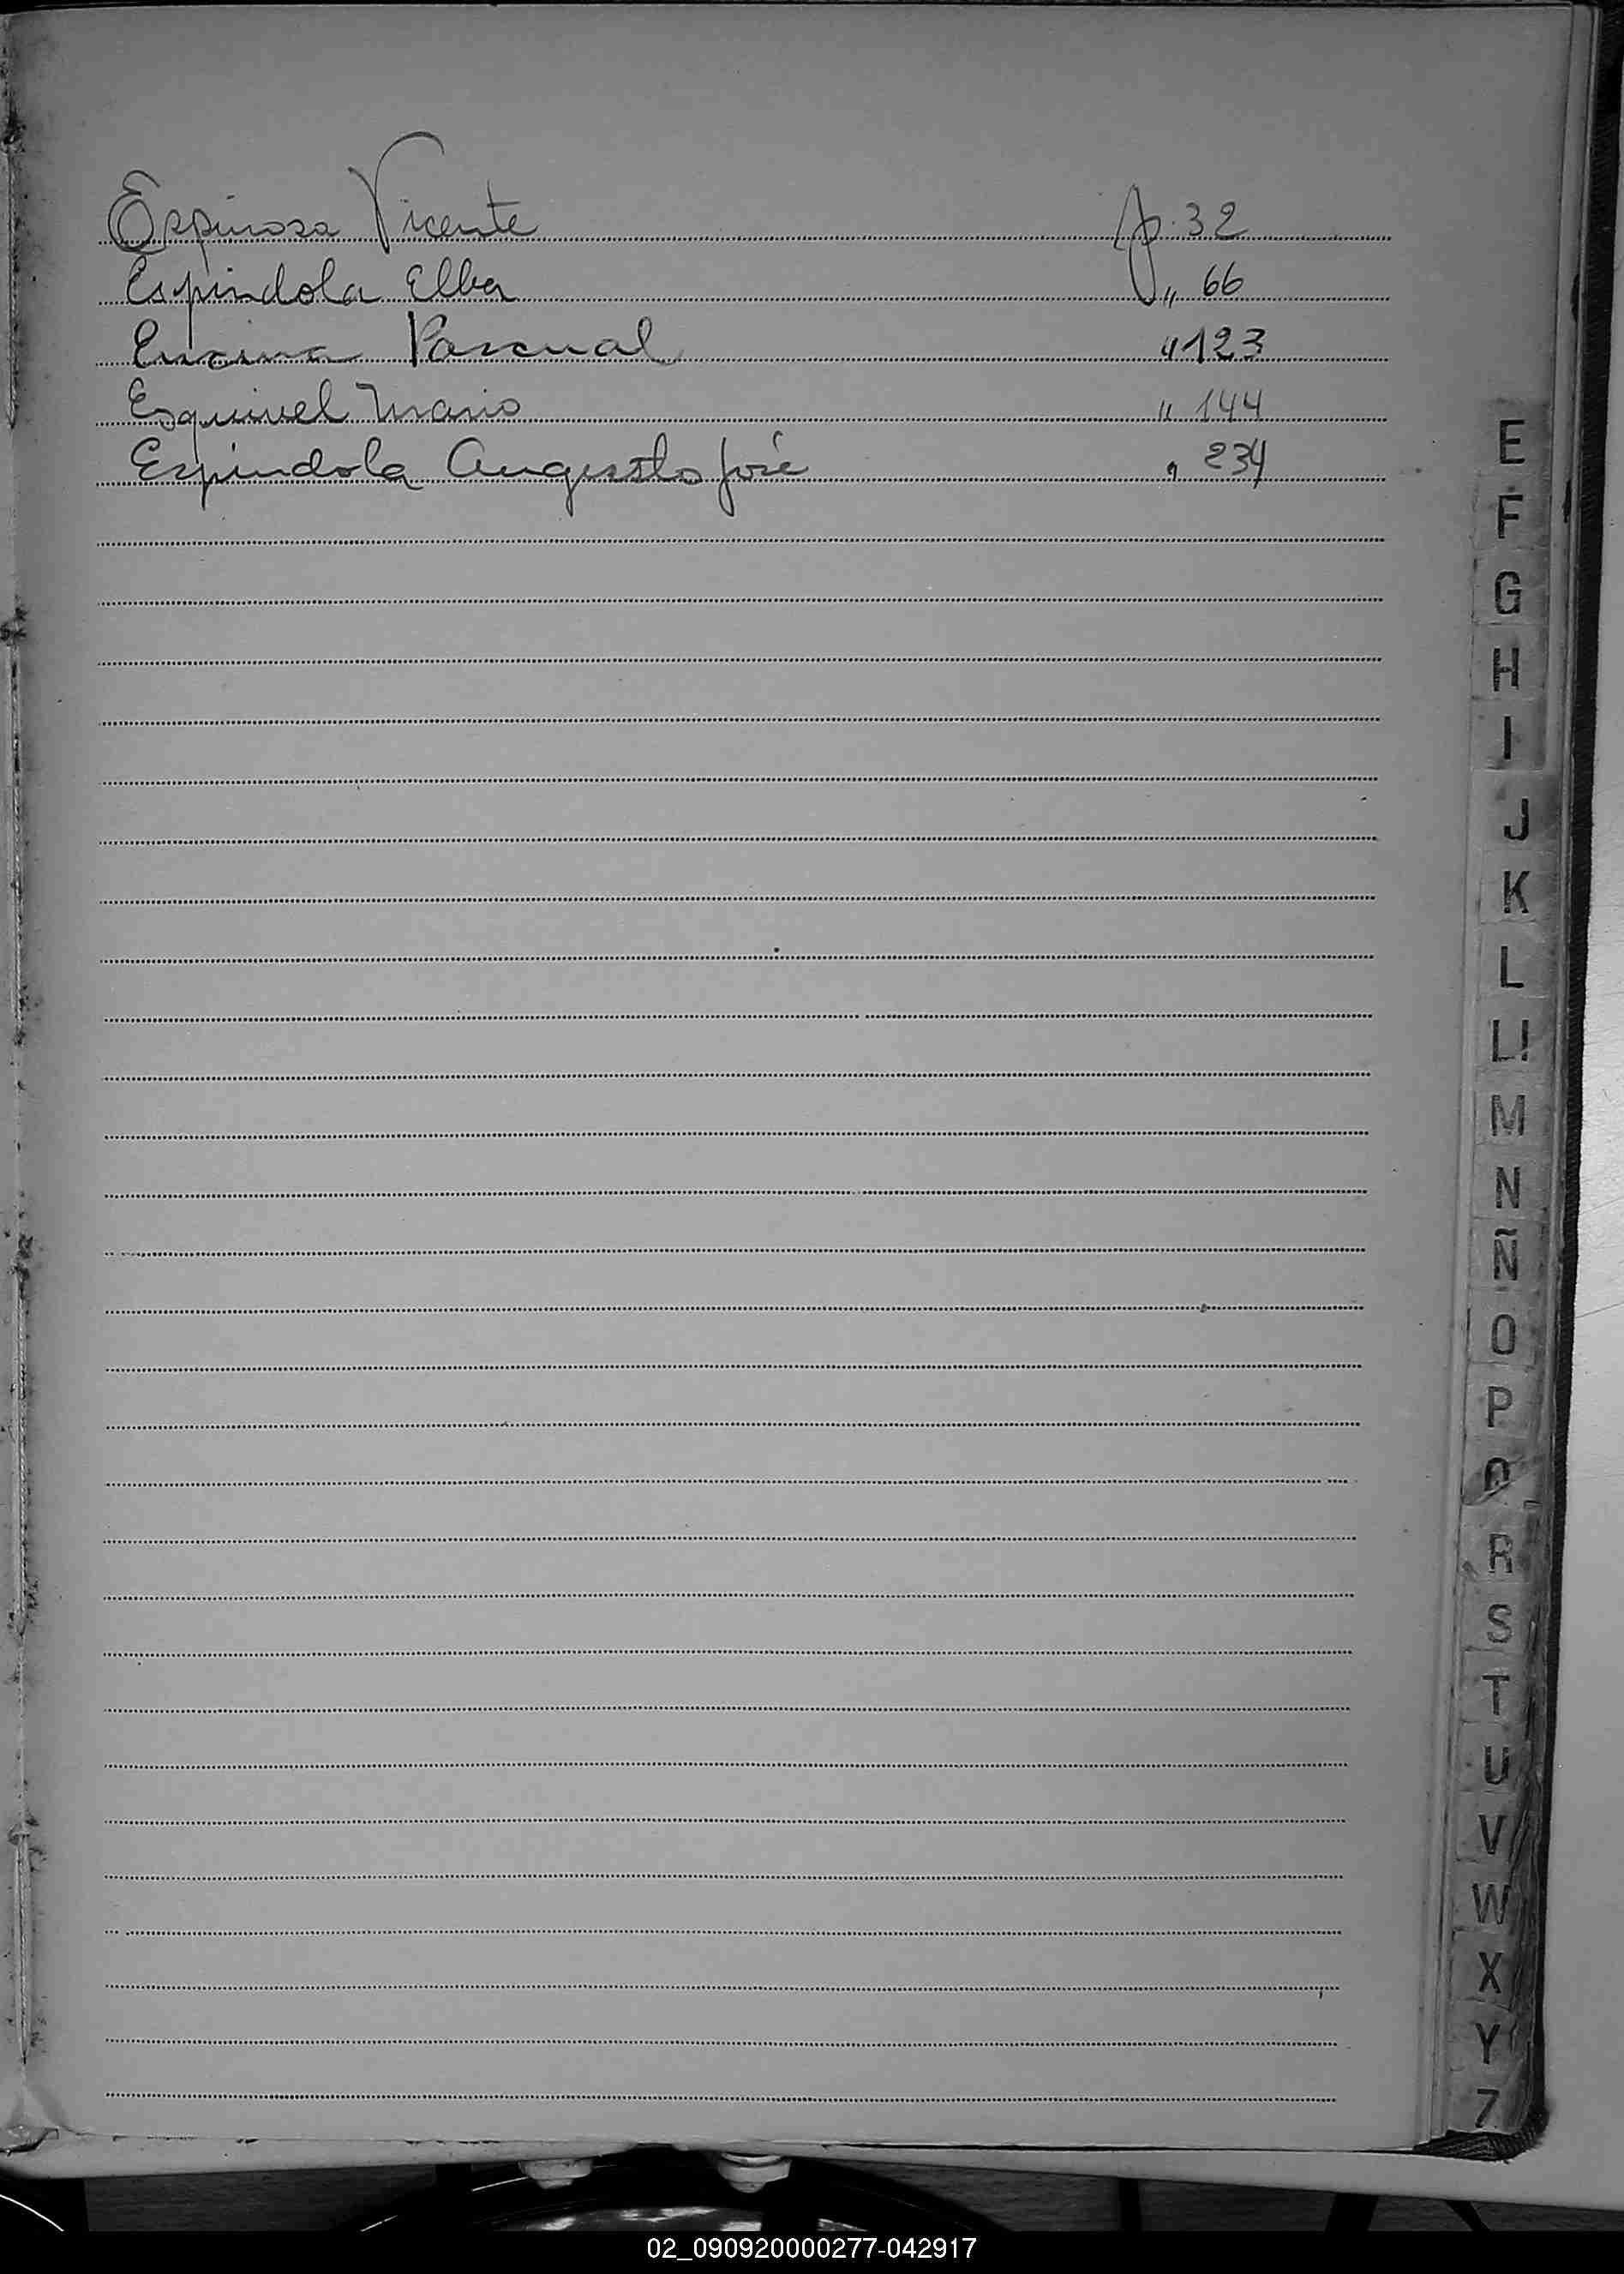 Espinosa Vicente p. 32
Espindola Elba „ 66
Encina Pascual " 123
Esquivel Mario " 144
Espindola Augusto José " 234
E
F
G
H
I
J
K
L
Ll
M
N
Ñ
O
P
Q
R
S
T
U
V
W
X
Y
Z
02_090920000277-042917